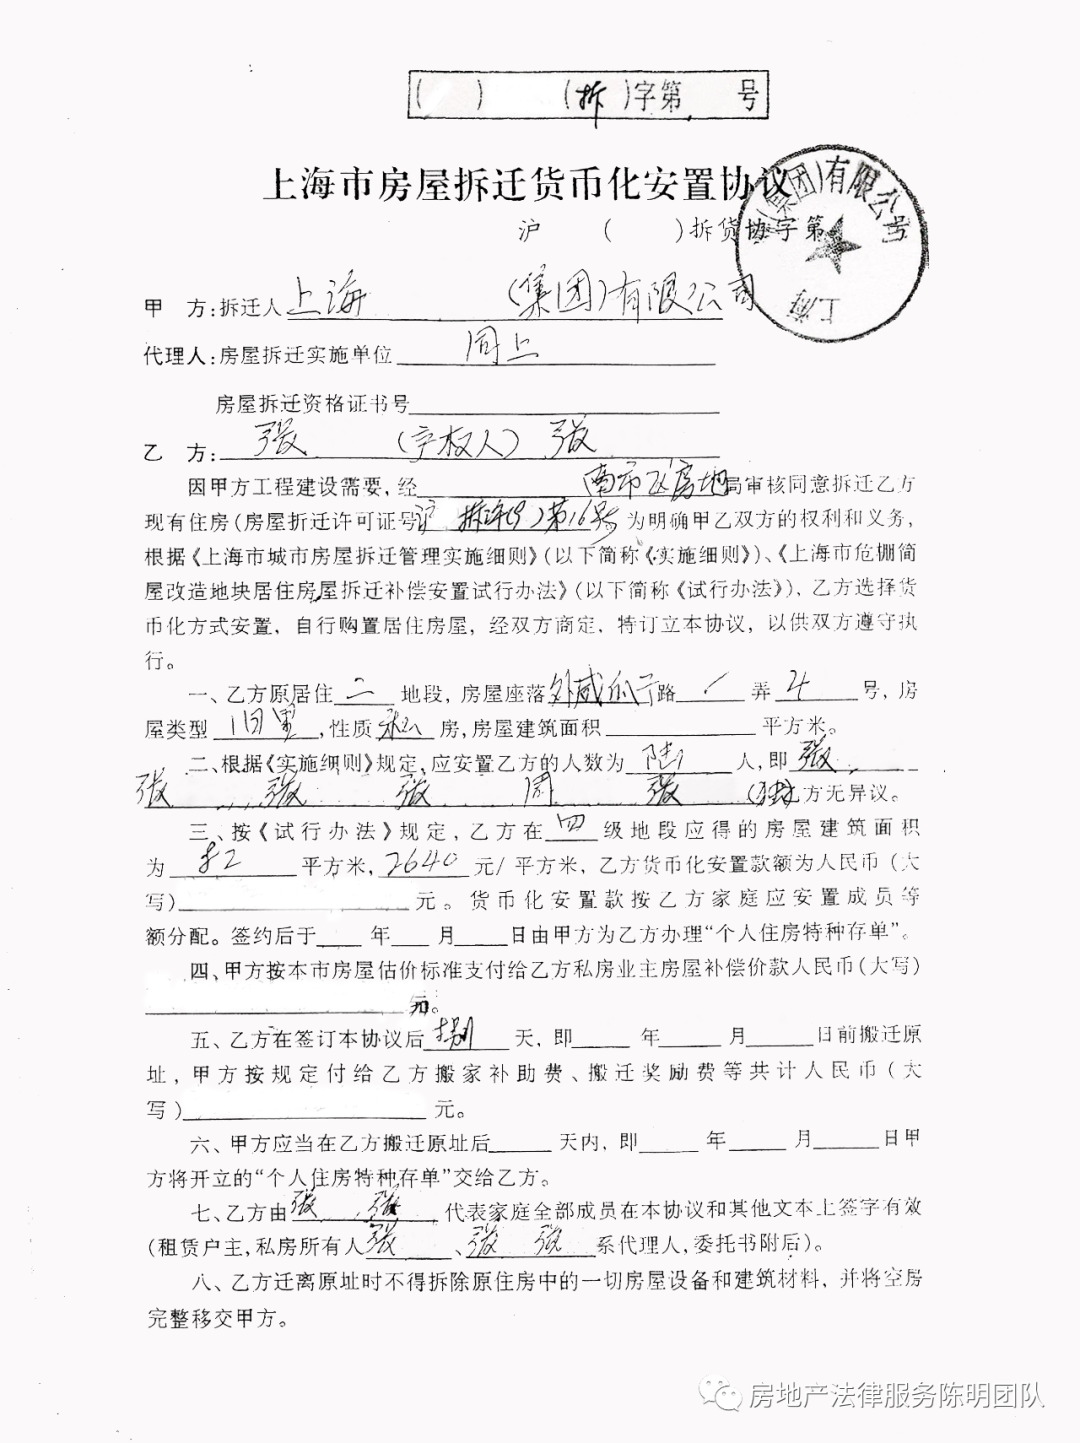 ( ) (拆)字第 号
上海市房屋拆迁货币化安置协议
沪 ( )拆货协字第 号
(集团)有限公司
上海
甲 方:拆迁人 上海 (集团)有限公司
代理人:房屋拆迁实施单位 同上
房屋拆迁资格证书号
乙 方: 张 (产权人) 张
因甲方工程建设需要,经 南市区房地局审核同意拆迁乙方
现有住房(房屋折迁许可证号沪 拆许字)第16号 为明确甲乙双方的权利和义务,
根据《上海市城市房屋拆迁管理实施细则》(以下简称《实施细则》)、《上海市危棚简
屋改造地块居住房屋拆迁补偿安置试行办法》(以下简称《试行办法》),乙方选择货
币化方式安置,自行购置居住房屋,经双方商定,特订立本协议,以供双方遵守执
行。
一、乙方原居住 二 地段,房屋座落 外咸瓜 路 弄 4 号,房
屋类型 旧里 ,性质 私 房,房屋建筑面积 平方米。
二、根据《实施细则》规定,应安置乙方的人数为 陆 人,即 张
张 张 张 周 张 (独)乙方无异议。
三、按《试行办法》规定,乙方在 四 级地段应得的房屋建筑面积
为 平方米, 2640 元/平方米,乙方货币化安置款额为人民币(大
写) 元。货币化安置款按乙方家庭应安置成员等
额分配。签约后于 年 月 日由甲方为乙方办理“个人住房特种存单”。
四、甲方按本市房屋估价标准支付给乙方私房业主房屋补偿价款人民币(大写)
元。
五、乙方在签订本协议后 天,即 年 月 日前搬迁原
址,甲方按规定付给乙方搬家补助费、搬迁奖励费等共计人民币(大
写) 元。
六、甲方应当在乙方搬迁原址后 天内,即 年 月 日甲
方将开立的“个人住房特种存单”交给乙方。
七、乙方由 张 、张 代表家庭全部成员在本协议和其他文本上签字有效
(租赁户主,私房所有人 张 、张 张 系代理人,委托书附后)。
八、乙方迁离原址时不得拆除原住房中的一切房屋设备和建筑材料,并将空房
完整移交甲方。
房地产法律服务陈明团队